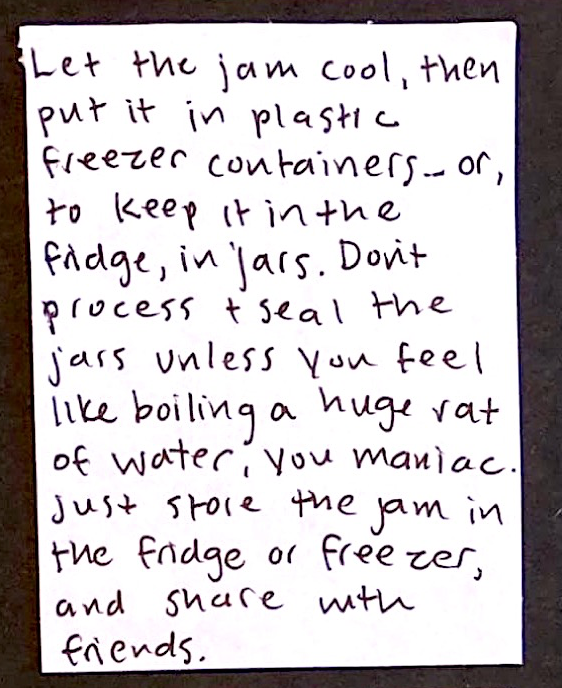 Let the jam cool, then
put it in plastic
freezer containers – or,
to keep it in the
fridge, in jars. Don't
process + seal the
jars unless you feel
like boiling a huge vat
of water, you maniac.
Just store the jam in
the fridge or freezer,
and share with
friends.